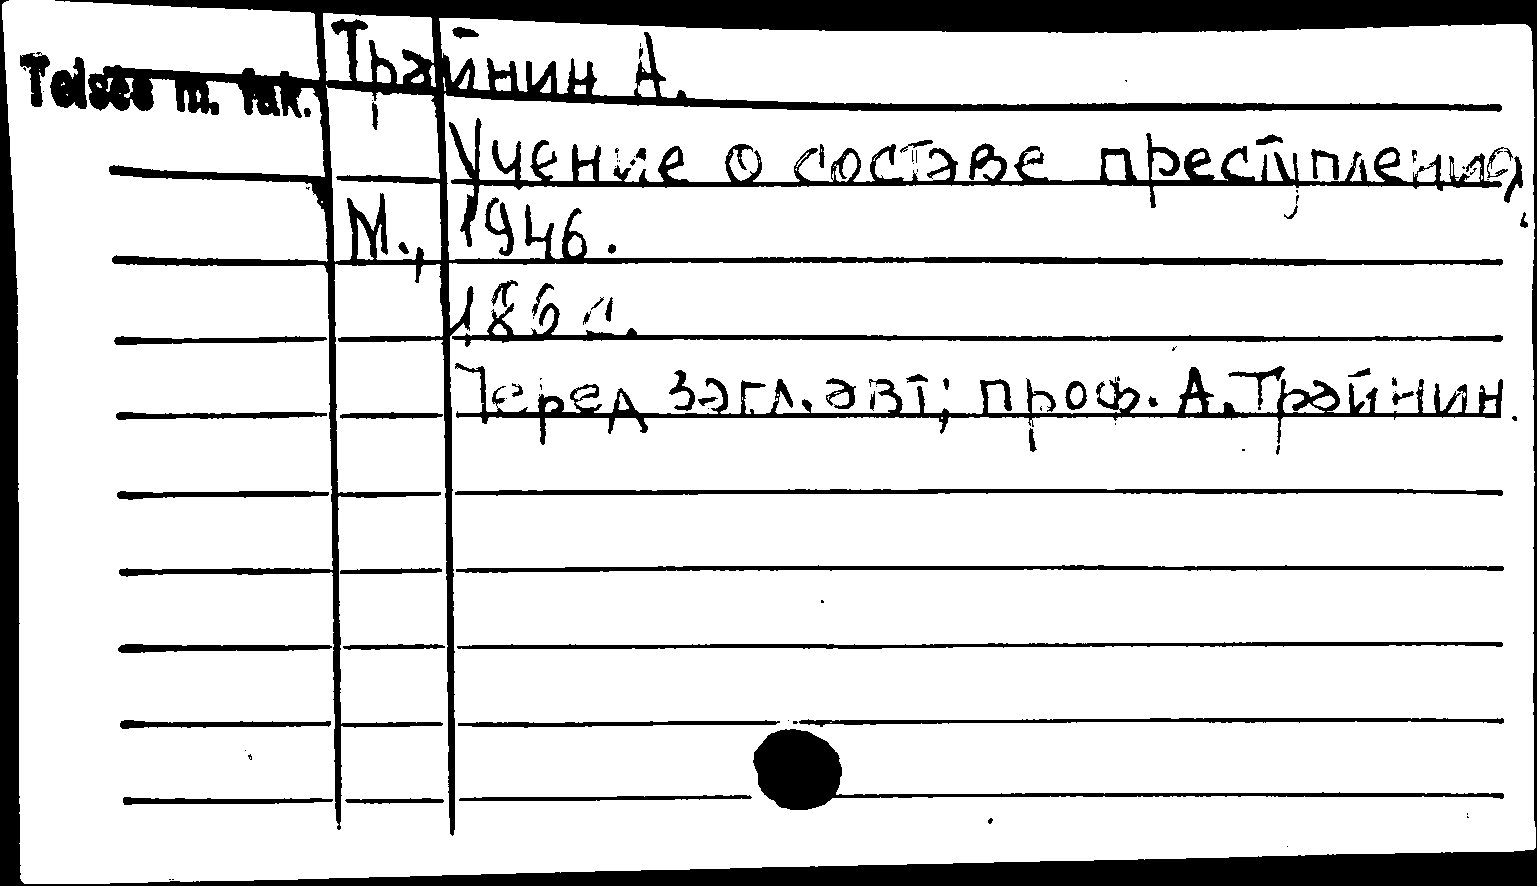 Трайнин А.
Teisės m. fak.
Учение о составе преступления.
М., 1946.
186 с.
Перед загл. авт; проф. А. Трайнин.